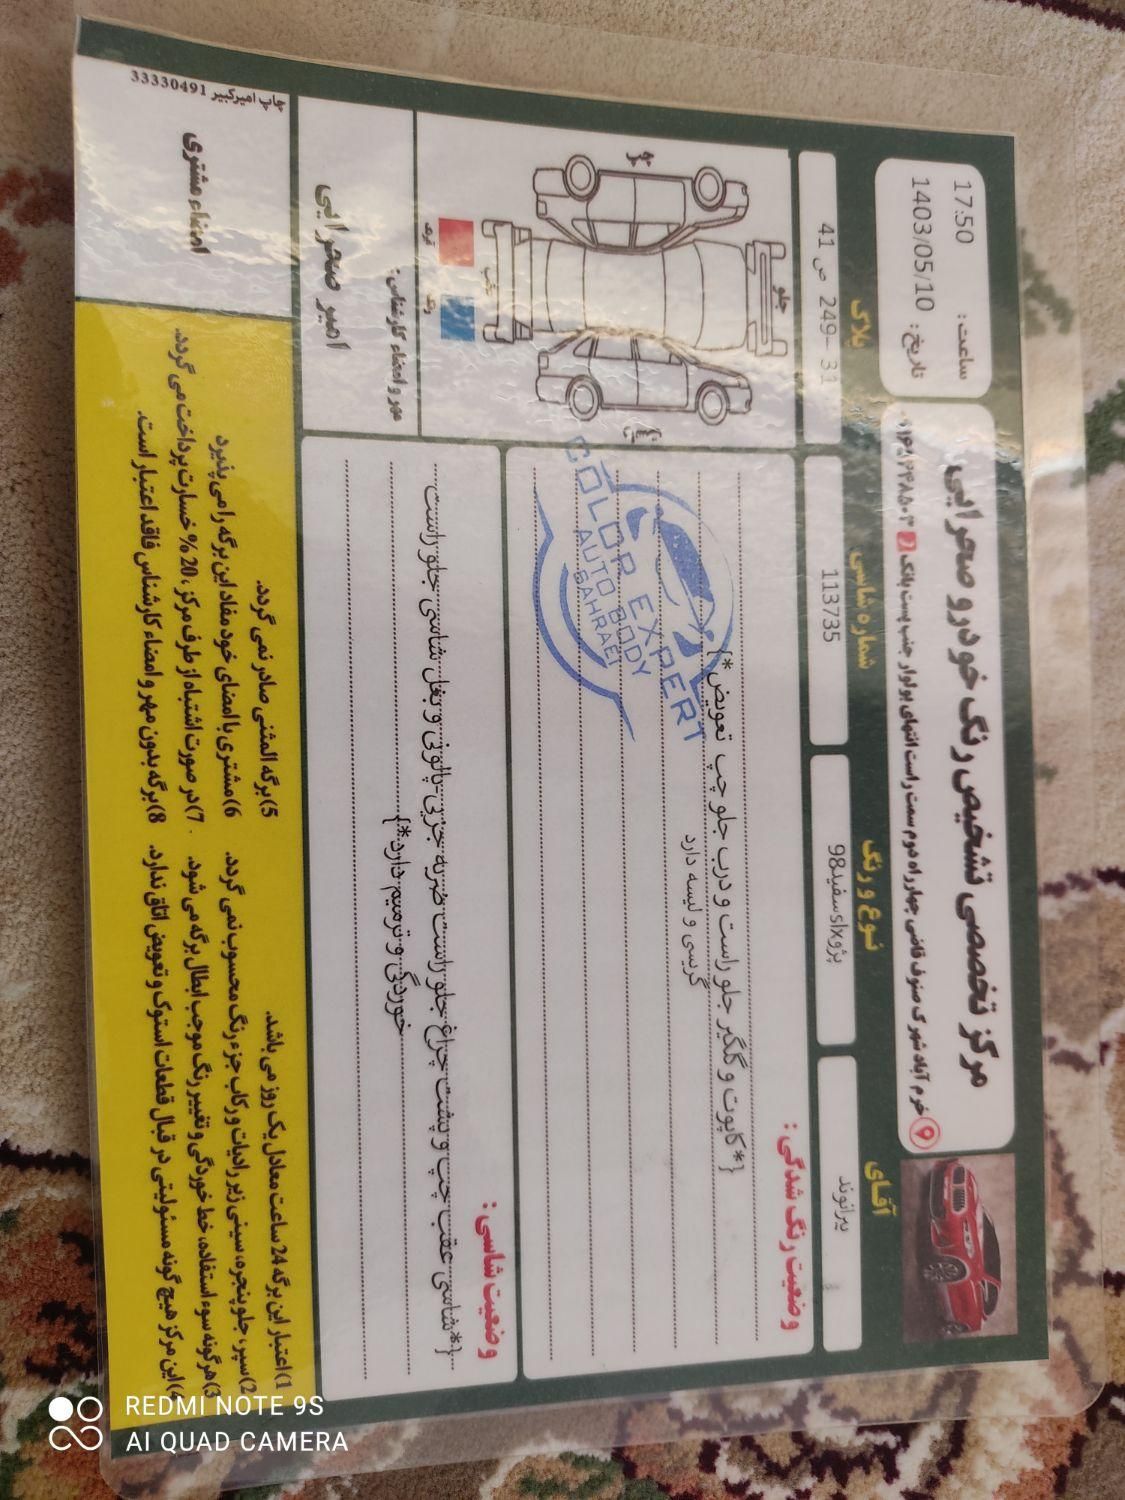 مرکز تخصصی تشخیص رنگ خودرو صحرایی
خرم آباد شهرک صنوف قاضی چهارراه دوم سمت راست انتهای بولوار جنب پست بانک
ساعت: 17:50
تاریخ: 1403/05/10
آقای
بیرانوند
نوع و رنگ
پژوslxسفید98
شماره شاسی
113735
پلاک
31 - 249 ص 41
وضعیت رنگ شدگی:
{*کاپوت و گلگیر جلو راست و درب جلو چپ تعویض*}
گریسی و لیسه دارد
COLOR EXPERT
AUTO BODY
SAHRAEI
جلو
چپ
عقب
رنگ
وضعیت شاسی:
{*شاسی عقب چپ و پشت چراغ جلو راست ضربه جزیی-پالونی و بغل شاسی جلو راست
خوردگی و ترمیم دارد*}
مهر و امضاء کارشناس:
امیر صحرایی
1)اعتبار این برگه 24 ساعت معادل یک روز می باشد.
2)سپر، جلو پنجره، سینی زیر رادیات و رکاب جزء رنگ محسوب نمی گردد.
3)هرگونه سوء استفاده، خط خوردگی و تغییر رنگ موجب ابطال برگه می شود.
4)این مرکز هیچ گونه مسئولیتی در قبال قطعات استوک و تعویض اتاق ندارد.
5)برگه المثنی صادر نمی گردد.
6)مشتری با امضای خود مفاد این برگه را می پذیرد
7)در صورت اشتباه از طرف مرکز، 20% خسارت پرداخت می گردد.
8)برگه بدون مهر و امضاء کارشناس فاقد اعتبار است.
امضاء مشتری
چاپ امیرکبیر 33330491
REDMI NOTE 9S
AI QUAD CAMERA